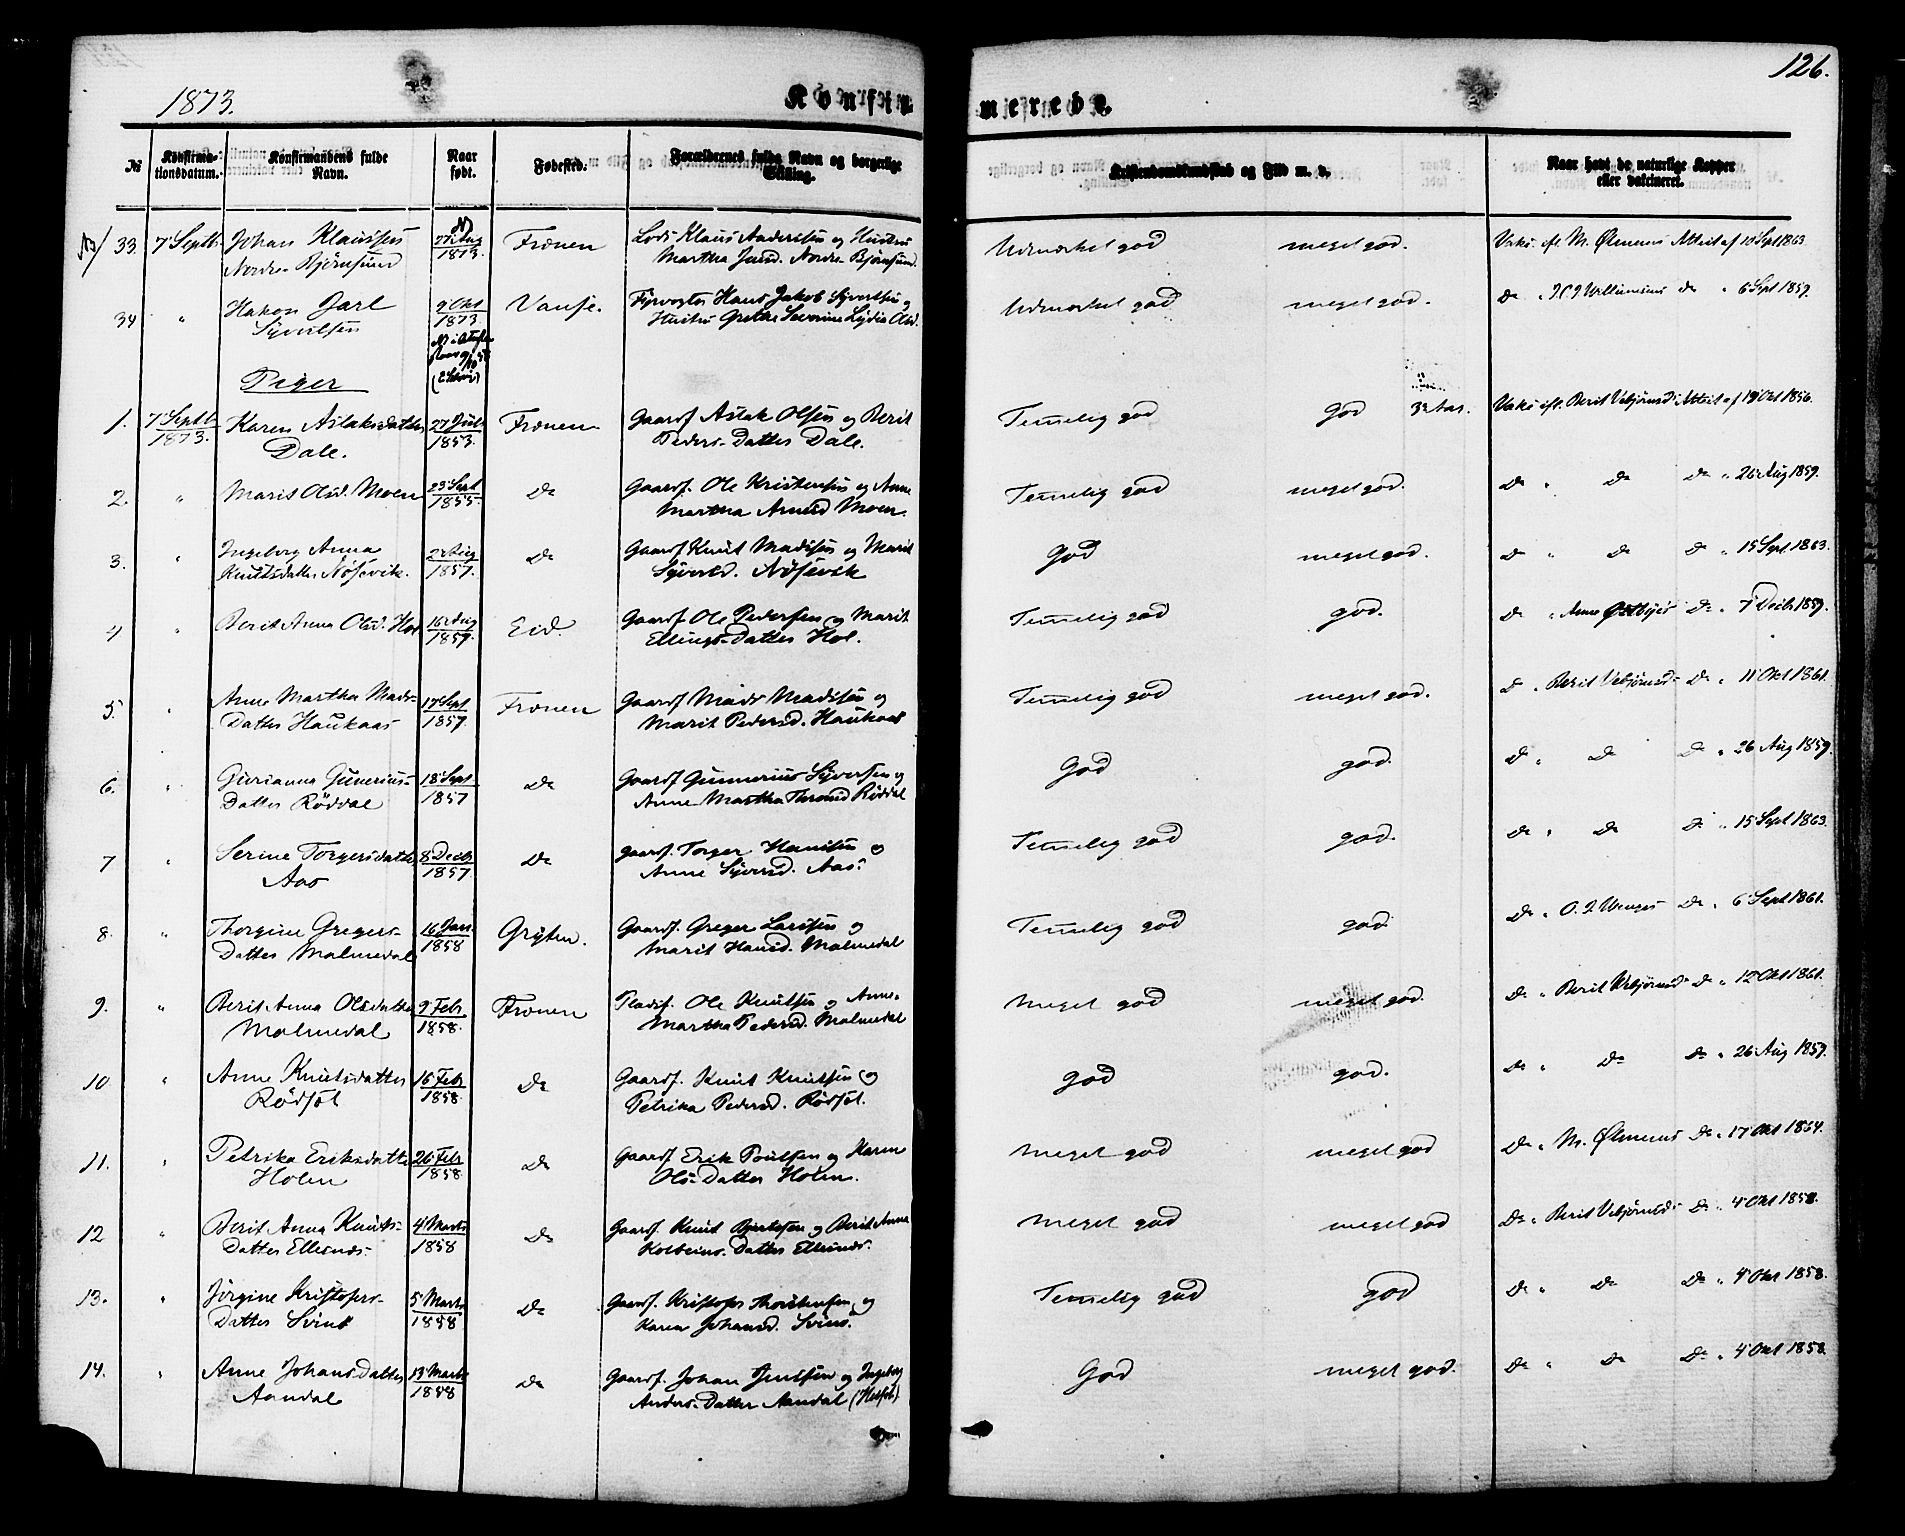 1873.
Konfir
merede.
126.
№
Konfirma-
tionsdatum.
Konfirmandens fulde
Navn.
Naar
født.
Fødested.
Forældrenes fulde Navn og borgerlige
Stilling.
Kristendomskundskab og Flid m. v.
Naar havt de naturlige Kopper
eller vakcineret.
33. 7 Septb. Johan Klaussen 27 Aug Frænen Lods Klaus Anderssen og Hustru Udmærket god meget god. Vaks. efl. M. Ølmenus Attest af 10 Sept 1863.
Nordre Bjørnsund 1873. Martha Jensd. Nordre Bjørnsund.
34 " Hakon Jarl 9 Okt Vanse. Fyrvogter Hans Jakob Syvertsen og Udmærket god meget god. Do " Do " 6 Sept 1859.
Syvertsen 1873 Hustru Grethe Severine Lydia Olsd.
Piger
1. 7 Septb Karen Aslaksdatter 27 Juli Frænen Gaardf. Aslak Olsen og Berit Temelig god God 3 Aar. Vaks. efl. Berit Vebjørnsd. Attest af 19 Okt 1856.
1873. Dale. 1853. Peders-Datter Dale.
2. " Marit Olsd. Moen 23 Sept Do Gaardf. Ole Kristensen og Anne Temelig god meget god. Do " Do Do " 26 Aug 1859.
1855. Martha Arnesd Moen.
3. " Ingeborg Anna 2 Aug Do Gaardf. Knut Madssen og Marit God meget god. Do " Do Do " 15 Sept 1863.
Knutsdatter Nøsevik. 1857. Syversd. Nøsevik
4 " Berit Anna Olsd. Hol 16 Aug Eid. Gaardf. Ole Pedersen og Marit Temelig god god. Do " Anne Do " 7 Decb 1859.
1857. Ellings-Datter Hol.
5. " Anne Martha Mads- 17 Sept Frænen Gaardf Mads Madssen og Temelig god meget god. Do " Berit Vebjørnsd Do " 11 Okt 1861.
Datter Haukaas 1857. Marit Pedersd. Haukaas
6. " Gurianna Gunerius- 18 Sept Do Gaardf Gunnerius Syversen og God god. Do " Do Do " 26 Aug 1859.
Datter Röddal 1857 Anne Martha Thronsd Röddal
7 " Serine Torgersdatter 8 Decb Do Gaardf. Torger Hanssen og Temelig god god. Do " Do Do " 15 Sept 1863.
Aas 1857 Anne Syversd. Aas.
8. " Thorgine Gregers- 16 Jan. Gryten. Gaardf. Greger Larssen og Temelig god god. Do " Do " 6 Sept 1861.
Datter Malmedal 1858 Marit Hansd. Malmedal
9. " Berit Anna Olsdatter 9 Feb Frænen Pladsf. Ole Knutsen og Anne- Meget god meget god. Do " Berit Vebjørnsd Do " 12 Okt 1861.
Malmedal 1858. Martha Pedersd. Malmedal
10 " Anne Knutsdatter 16 Feb Do Gaardf. Knut Knutsen og god god. Do " Do Do " 26 Aug 1859.
Rödsöl 1858. Petrika Pedersd. Rödsöl.
11. " Petrika Eriksdatter 26 Feb Do Gaardf. Erik Poulsen og Karen Meget god meget god Do " M. Ølmenus Do " 17 Okt 1864.
Holen 1858 Ols-Datter Holen.
12 " Berit Anna Knuts- 4 Marts Do Gaardf. Knut og Berit Anna Meget god meget god Do " Berit Vebjørnsd. Do " 4 Okt 1858.
Datter Ellesnæs 1858 Kolbeins-Datter Ellesnæs.
13. " Jörgine Kristofers- 5 Marts Do Gaardf. Kristofer Thorstensen og Temelig god god Do " Do Do " 4 Okt 1858.
Datter Svins 1858 Karen Johansd. Svins.
14. " Anne Johans Datter 13 Marts Do Gaardf. Johan Jentsen og Ingeborg God meget god. Do " Do Do " 4 Okt 1858.
Aandal 1858 Anders-Datter Aandal